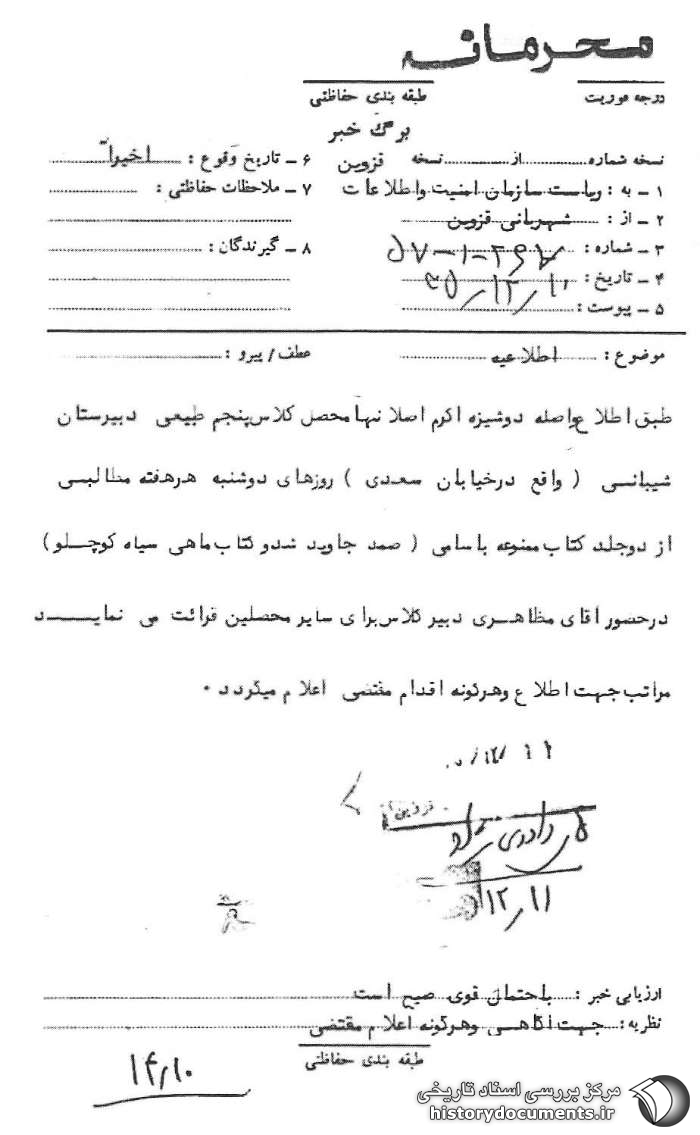 محرمانه
درجه فوریت
طبقه بندی حفاظتی
برگ خبر
نسخه شماره از نسخه
۱ ـ به : ریاست سازمان امنیت واطلاعات قزوین
۲ ـ از : شهربانی قزوین
۳ ـ شماره :
۴ ـ تاریخ :
۵ ـ پیوست :
۶ ـ تاریخ وقوع : اخیراً
۷ ـ ملاحظات حفاظتی :
۸ ـ گیرندگان :
موضوع : اطلاعیه
عطف / پیرو :
طبق اطلاع واصله دوشیزه اکرم اصلانیها محصل کلاس پنجم طبیعی دبیرستان
شیبانی ( واقع درخیابان سعدی ) روزهای دوشنبه هرهفته مطالبی
از دوجلد کتاب ممنوعه باسامی ( صمد جاوید شدو کتاب ماهی سیاه کوچلو )
درحضور اقای مظاهری دبیر کلاس برای سایر محصلین قرائت می نماید
مراتب جهت اطلاع وهرگونه اقدام مقتضی اعلام میگردد .
قزوین
۱۲/۱۱
ارزیابی خبر : باحتمال قوی صیح است
نظریه : جهت اگاهی وهرگونه اعلام مقتضی
طبقه بندی حفاظتی
۱۴/۱۰
مرکز بررسی اسناد تاریخی
historydocuments.ir